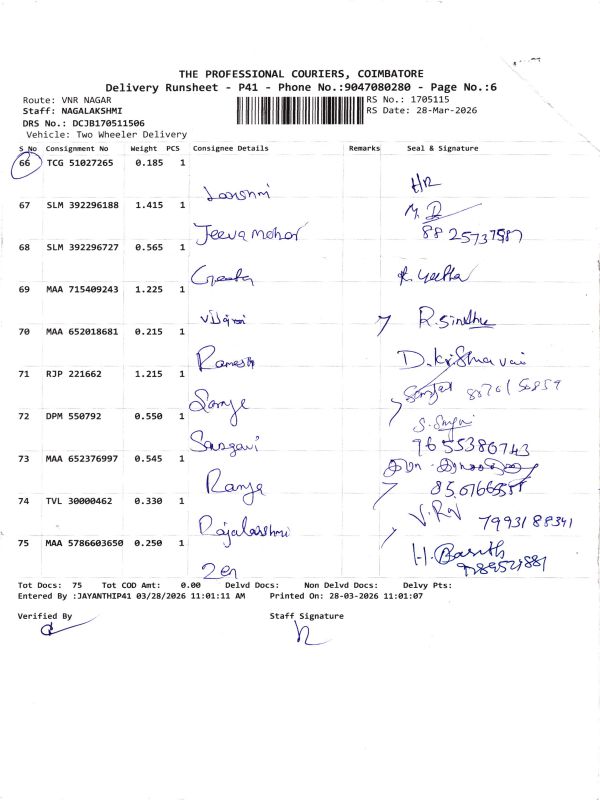 THE PROFESSIONAL COURIERS, COIMBATORE
Delivery Runsheet - P41 - Phone No.:9047080280 - Page No.:6
Route: VNR NAGAR
RS No.: 1705115
Staff: NAGALAKSHMI
RS Date: 28-Mar-2026
DRS No.: DCJB170511506
Vehicle: Two Wheeler Delivery
S No Consignment No Weight PCS Consignee Details Remarks Seal & Signature
66 TCG 51027265 0.185 1
67 SLM 392296188 1.415 1
Jeeva mohar
68 SLM 392296727 0.565 1
Geeta
69 MAA 715409243 1.225 1
R. Sindhu
70 MAA 652018681 0.215 1
Ramesh
71 RJP 221662 1.215 1
72 DPM 550792 0.550 1
9655380743
73 MAA 652376997 0.545 1
Ramya
74 TVL 30000462 0.330 1
Rajalakshmi
75 MAA 5786603650 0.250 1
Zen
Tot Docs: 75 Tot COD Amt: 0.00 Delvd Docs: Non Delvd Docs: Delvy Pts:
Entered By :JAYANTHIP41 03/28/2026 11:01:11 AM Printed On: 28-03-2026 11:01:07
Verified By Staff Signature